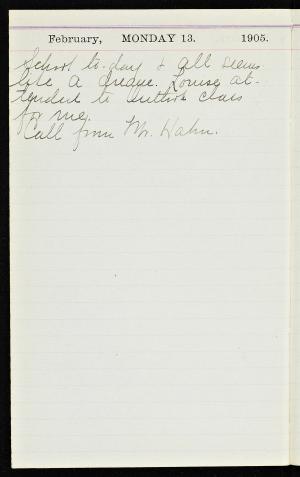 February, MONDAY 13. 1905.
School to-day & all seems
like a dream. Louise at-
tended to class
for me.
Call from Mr. Hahn.